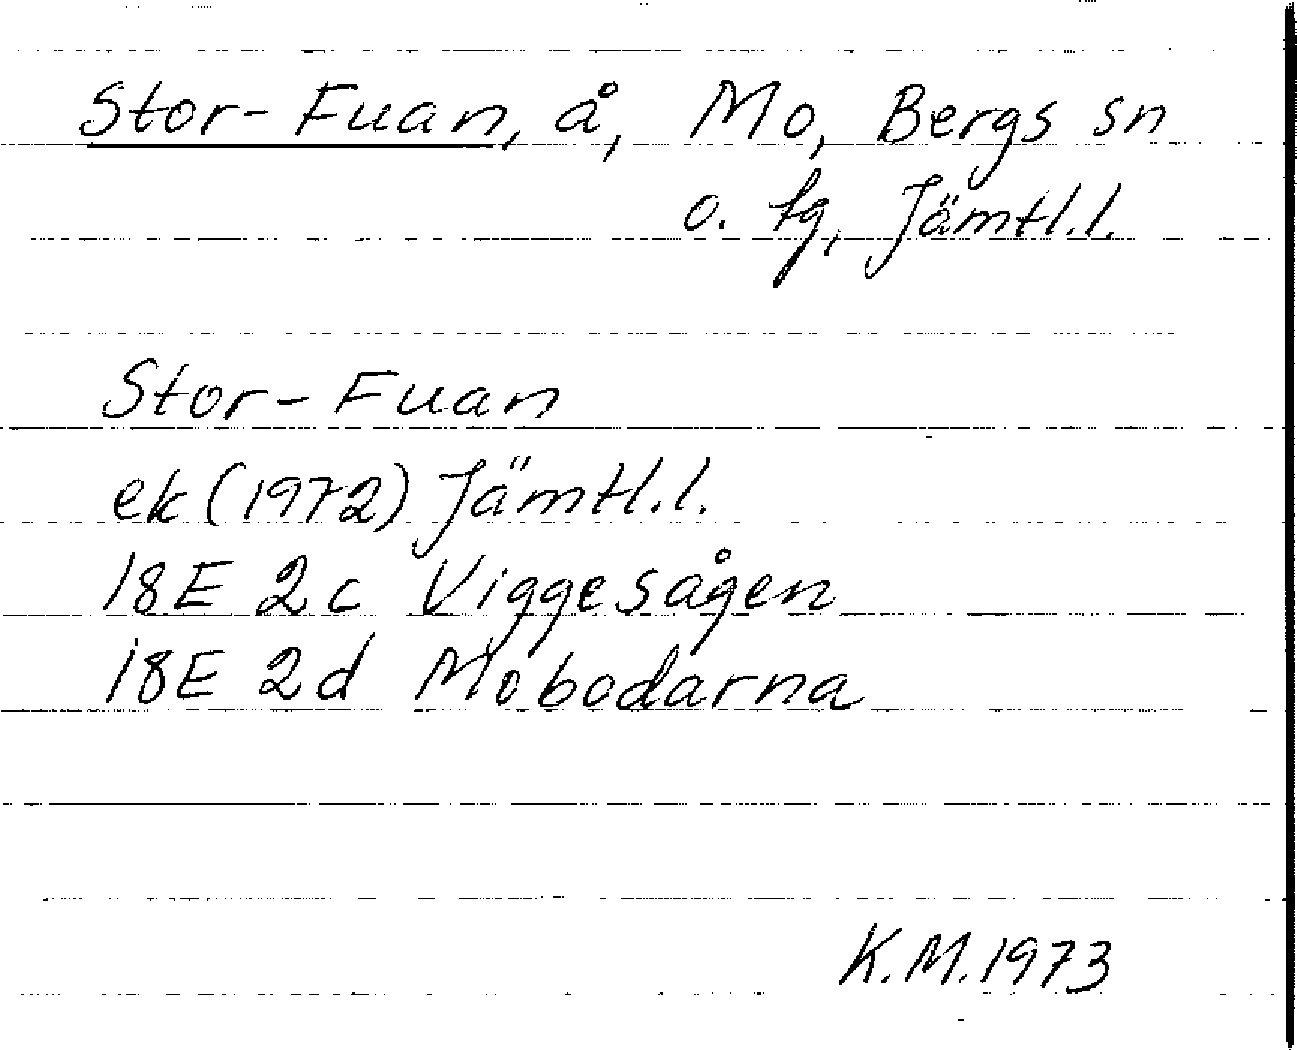 Stor-Fuan, å, Mo, Bergs sn
o. tg, Jämtl.l.
Stor-Fuan
ek (1972) Jämtl.l.
18E 2c Viggesågen
18E 2d Mobodarna
K.M. 1973